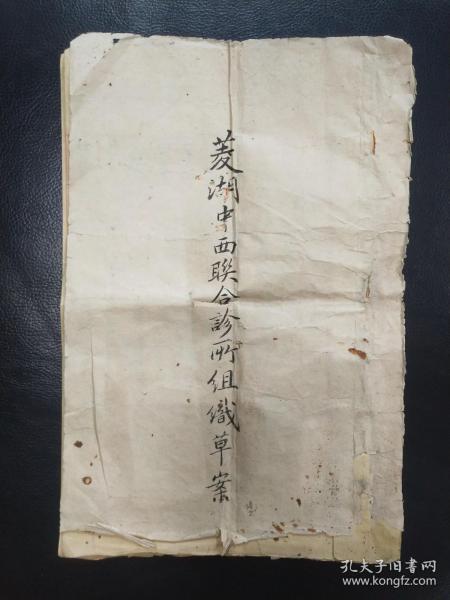 菱湖中西聯合診所組織草案
孔夫子旧书网
www.kongfz.com